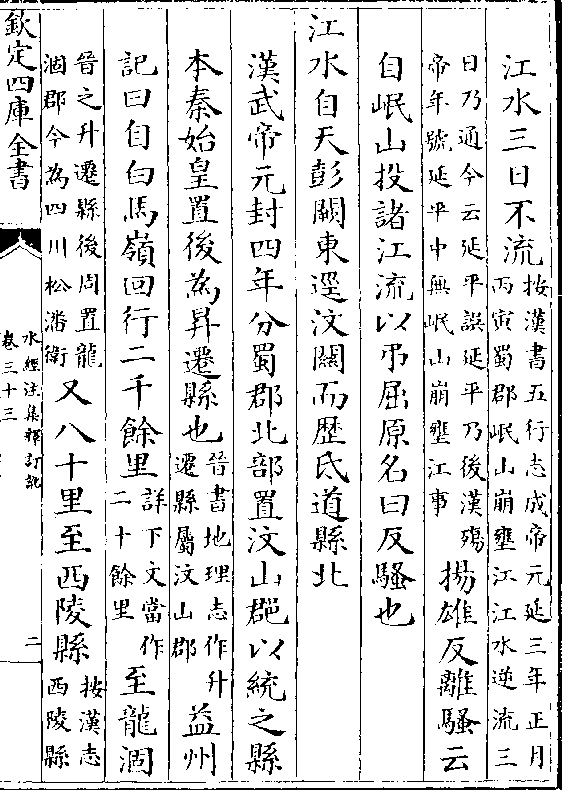 江水三日不流按漢書五行志成帝元延三年正月丙寅蜀郡岷山崩壅江江水逆流三
日乃通今云延平誤延平乃後漢殤帝年號延平中無岷山崩壅江事揚雄反離騷云
自岷山投諸江流以弔屈原名曰反騷也
江水自天彭闕東逕汶關而歴氐道縣北
漢武帝元封四年分蜀郡北部置汶山郡以統之縣
本秦始皇置後為昇遷縣也晉書地理志作升遷縣屬汶山郡益州
記曰自白馬嶺回行二千餘里詳下文當作二十餘里至龍涸
晉之升遷縣後周置龍涸郡今為四川松潘衛又八十里至西陵縣按漢志西陵縣
欽定四庫全書
水經注集釋訂訛
卷三十三
二